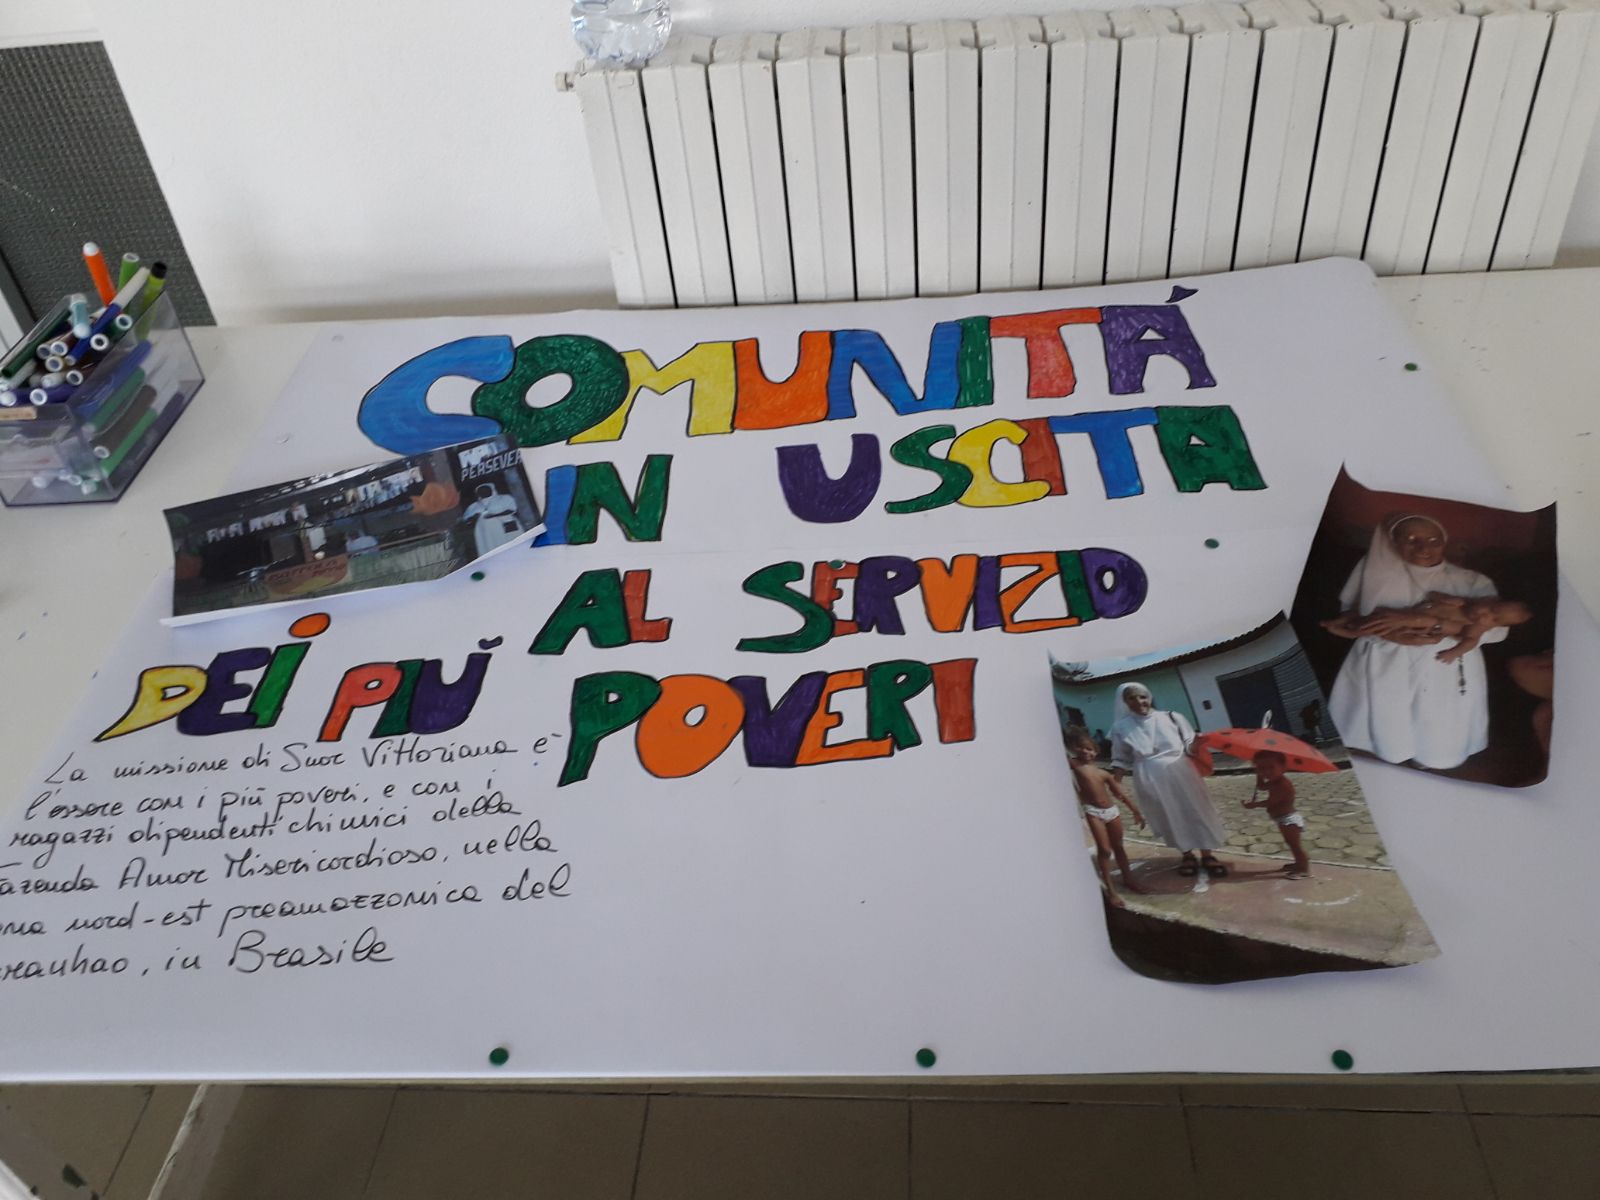 COMUNITÀ
IN USCITA
AL SERVIZIO
DEI PIÙ POVERI
La missione di Suor Vittoriana è
l'essere con i più poveri, e con i
ragazzi dipendenti chimici della
Fazenda Amor Misericordioso, nella
nord-est preamazzonica del
in Brasile
PERSEVER